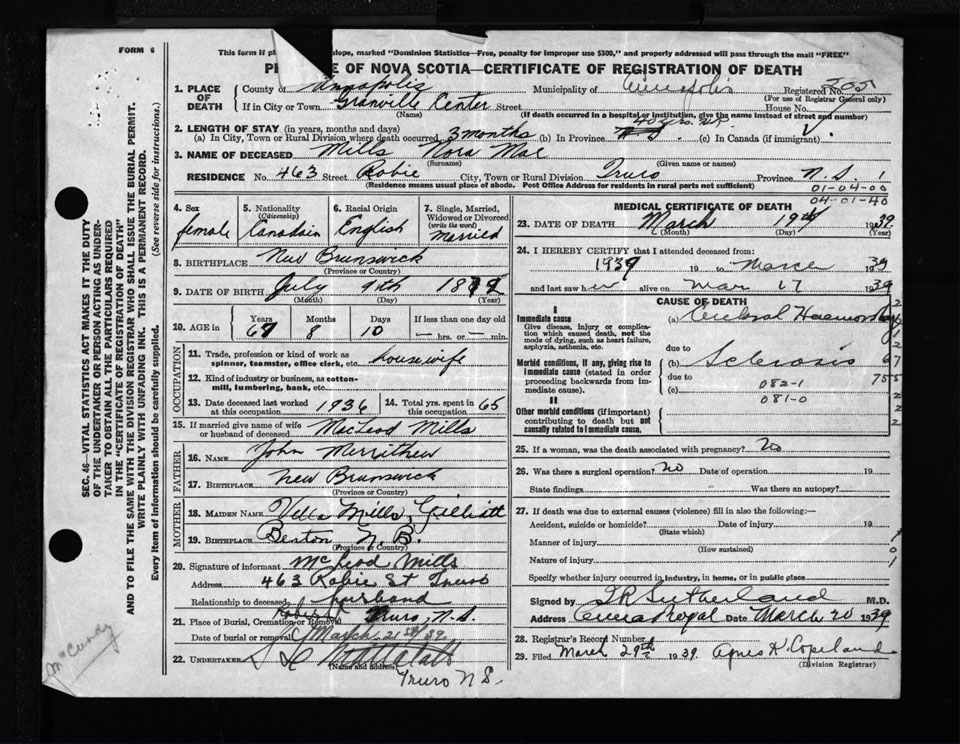 FORM 6
This form if pl lope, marked "Dominion Statistics—Free, penalty for improper use $300," and properly addressed will pass through the mail "FREE"
P E OF NOVA SCOTIA—CERTIFICATE OF REGISTRATION OF DEATH
1. PLACE OF DEATH County of Annapolis Municipality of Annapolis Registered No. 205
(For use of Registrar General only)
If in City or Town Granville Center Street House No.
(Name) (If death occurred in a hospital or institution, give the name instead of street and number)
2. LENGTH OF STAY (in years, months and days)
(a) In City, Town or Rural Division where death occurred 3 months (b) In Province 40 yrs. (c) In Canada (if immigrant)
3. NAME OF DECEASED Mills Nora Mae
(Surname) (Given name or names)
RESIDENCE No. 463 Street Robie City, Town or Rural Division Truro Province N.S. 1
(Residence means usual place of abode. Post Office Address for residents in rural parts not sufficient)
01-04-00
04-01-40
4. Sex female
5. Nationality (Citizenship) Canadain
6. Racial Origin English
7. Single, Married, Widowed or Divorced (write the word) married
8. BIRTHPLACE New Brunswick
(Province or Country)
9. DATE OF BIRTH July 9th
(Month) (Day) (Year)
10. AGE in Years 67 Months 8 Days 10 If less than one day — hrs. or — min.
OCCUPATION
11. Trade, profession or kind of work as spinner, teamster, office clerk, etc. housewife
12. Kind of industry or business, as cotton-mill, lumbering, bank, etc.
13. Date deceased last worked at this occupation 1936
14. Total yrs. spent in this occupation 65
15. If married give name of wife or husband of deceased MacLeod Mills
FATHER
16. Name John Merrithew
17. Birthplace New Brunswick
(Province or Country)
MOTHER
18. Maiden Name Mills, Gilliott
19. Birthplace Benton N.B.
(Province or Country)
20. Signature of informant McLeod Mills
Address 463 Robie St Truro
Relationship to deceased husband
21. Place of Burial, Cremation or Removal Robie St Truro, N.S.
Date of burial or removal March 21st/39
22. UNDERTAKER
(Name and address)
Truro N S.
MEDICAL CERTIFICATE OF DEATH
23. DATE OF DEATH March 19th 1939
(Month) (Day) (Year)
24. I HEREBY CERTIFY that I attended deceased from:
1939 19 to March 1939
and last saw her alive on Mar 17 1939
CAUSE OF DEATH
I
Immediate cause
Give disease, injury or complication which caused death, not the mode of dying, such as heart failure, asphyxia, asthenia, etc.
(a) Cerebral Haemorrhage
due to
Morbid conditions, if any, giving rise to immediate cause (stated in order proceeding backwards from immediate cause).
(b) Sclerosis
due to
(c) 082-1
081-0
II
Other morbid conditions (if important) contributing to death but not causally related to immediate cause.
25. If a woman, was the death associated with pregnancy? No
26. Was there a surgical operation? No Date of operation 19
State findings Was there an autopsy?
27. If death was due to external causes (violence) fill in also the following:—
Accident, suicide or homicide? Date of injury 19
(State which)
Manner of injury
(How sustained)
Nature of injury
Specify whether injury occurred in industry, in home, or in public place
Signed by Sutherland M.D.
Address Date March 20 1939
28. Registrar's Record Number
29. Filed March 29th 1939. Agnes K Copeland
(Division Registrar)
SEC. 46—VITAL STATISTICS ACT MAKES IT THE DUTY OF THE UNDERTAKER OR PERSON ACTING AS UNDERTAKER TO OBTAIN ALL THE PARTICULARS REQUIRED IN THE "CERTIFICATE OF REGISTRATION OF DEATH" AND TO FILE THE SAME WITH THE DIVISION REGISTRAR WHO SHALL ISSUE THE BURIAL PERMIT.
WRITE PLAINLY WITH UNFADING INK. THIS IS A PERMANENT RECORD.
Every item of information should be carefully supplied. (See reverse side for instructions.)
McCurdy